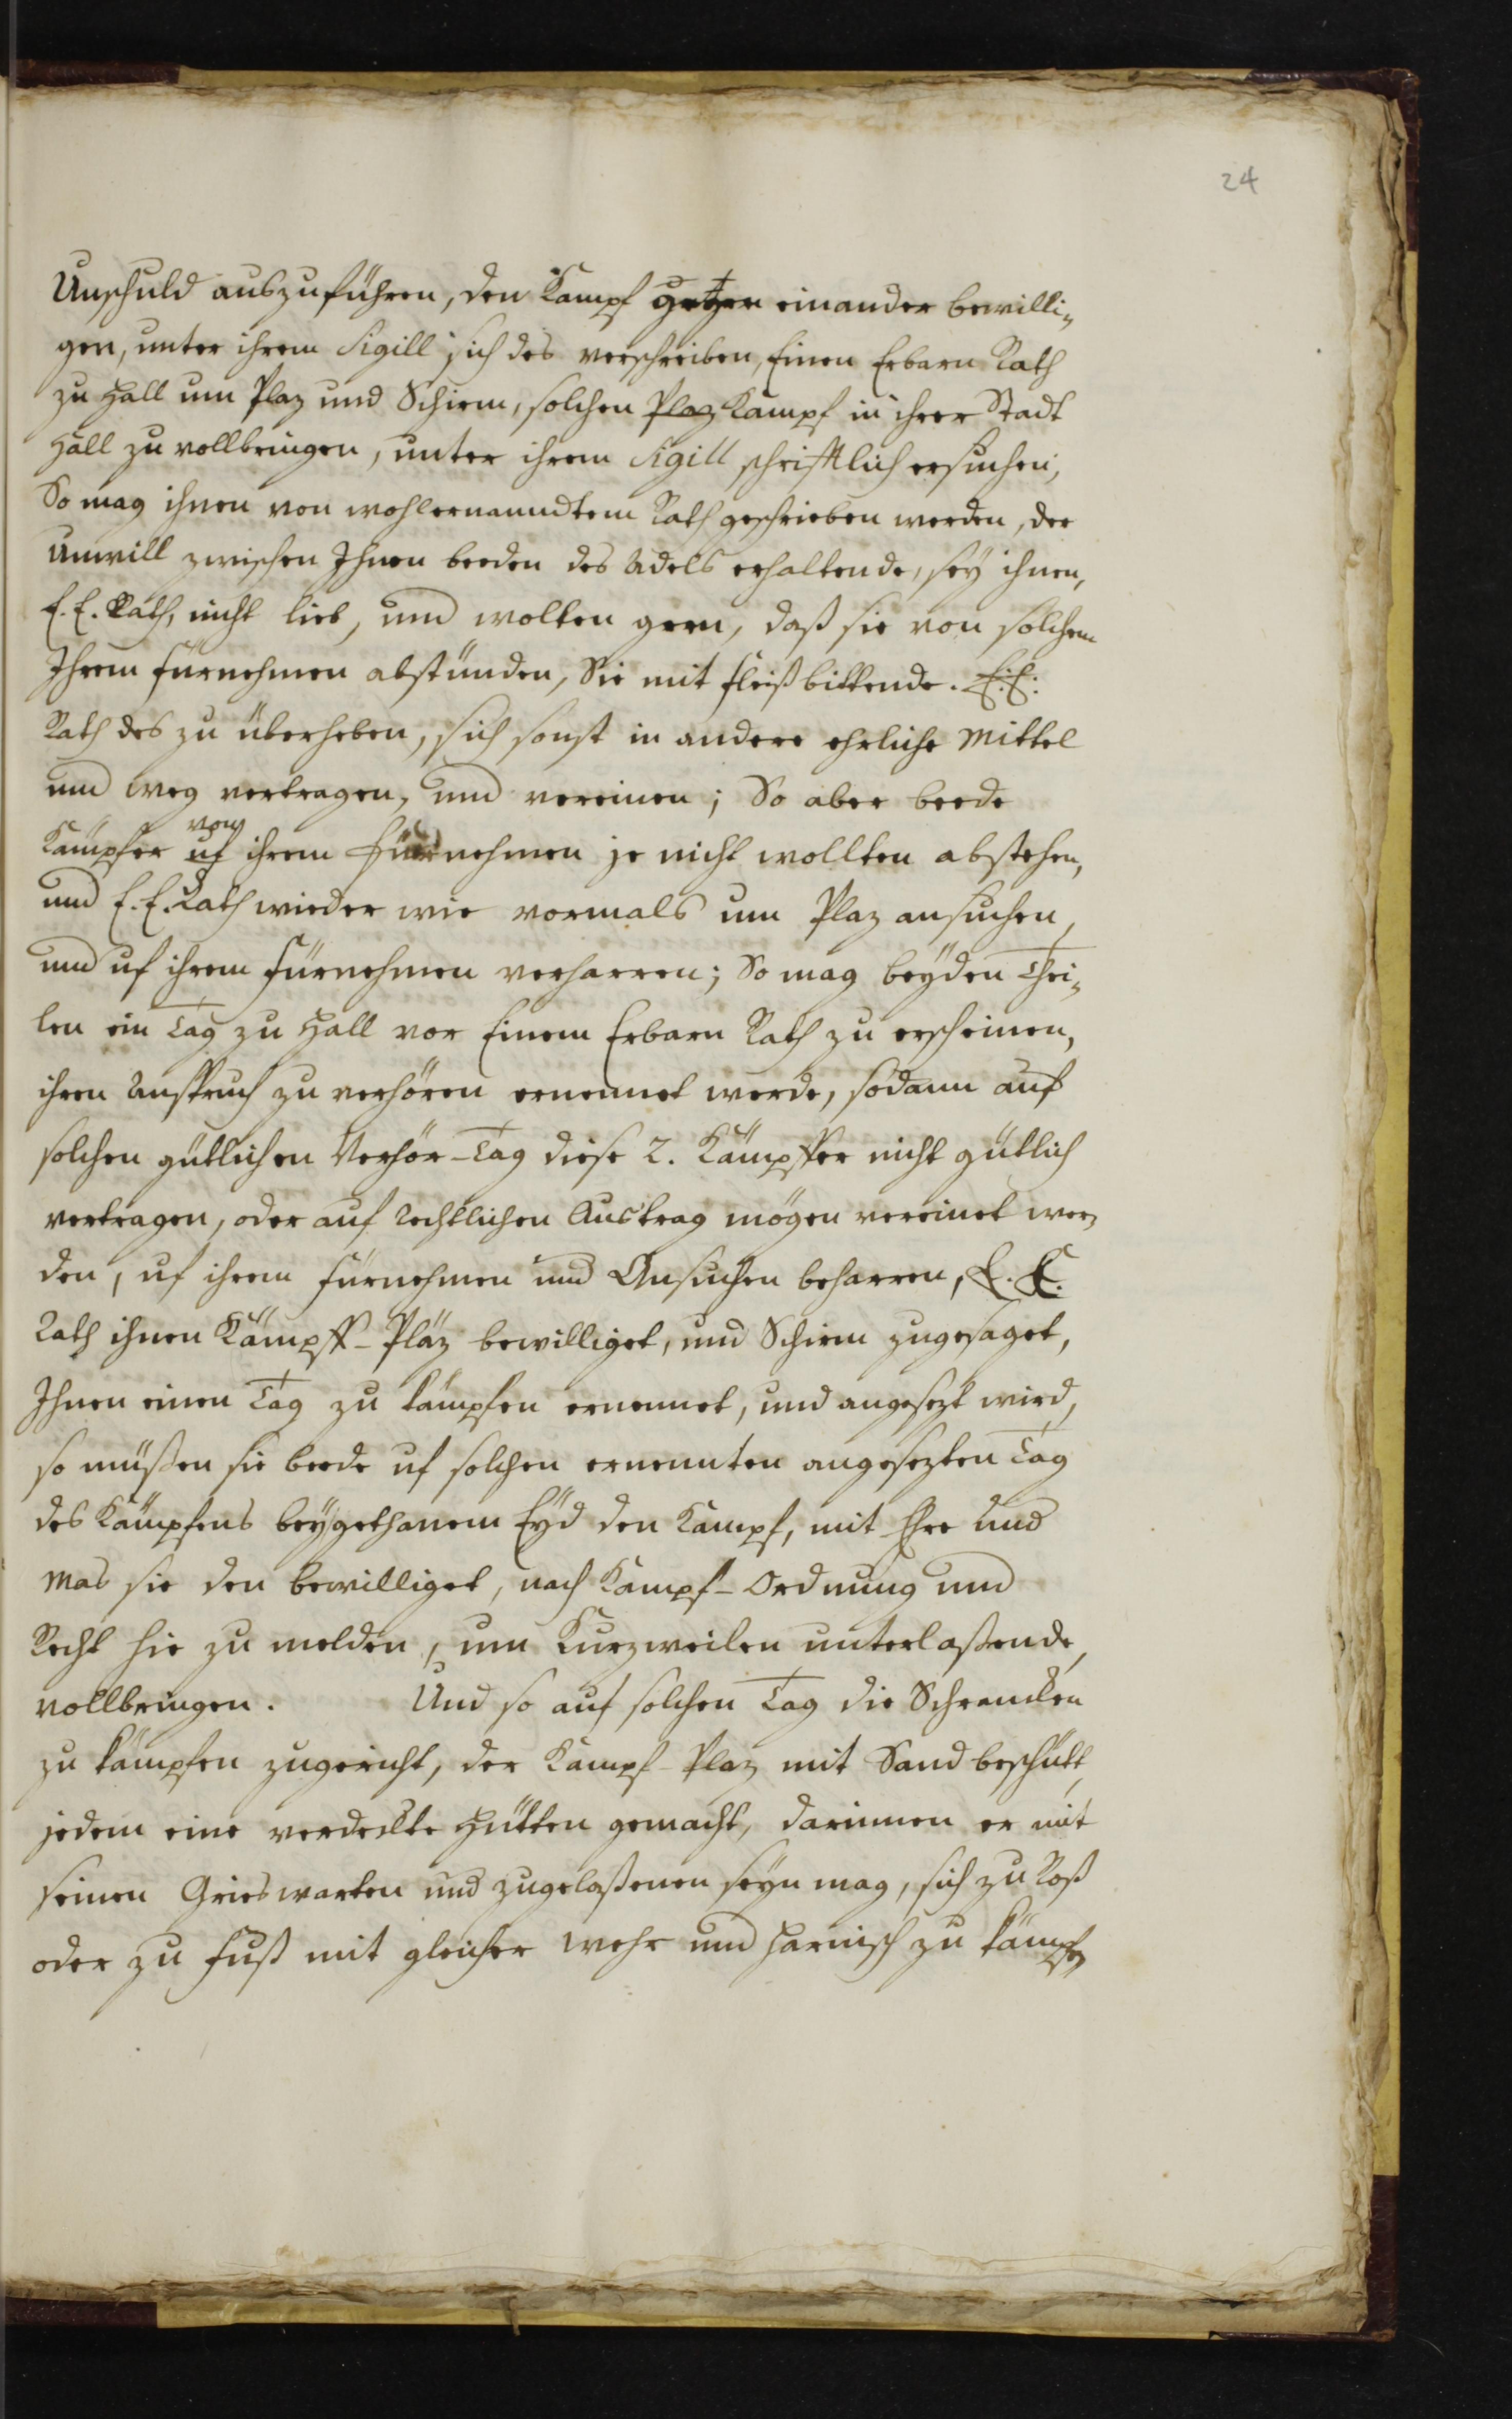 24
Unschuld auszuführen, den Kampf gegen einander bewilli-
gen, unter ihrem Sigill sich des verschreiben, Einen Erbarn Rath
zu Hall um Plaz und Schirm, solchen Plaz Kampf in ihrer Stadt
Hall zu vollbringen, unter ihrem Sigill schrifftlich ersuchen,
So mag ihnen von wohlernanndtem Rath geschrieben werden, der
Unwill zwischen Ihnen beeden des Adels erhaltende, sey ihnen,
E. E. Rath, nicht lieb, und wolten gern, daß sie von solchem
Ihrem fürnehmen abstünden, Sie mit fleiß bittende. E. E.
Rath des zu überheben, sich sonst in andere ehrliche Mittel
und weg vertragen, und vereinen; So aber beede
von
Kämpfer uf ihrem fürnehmen je nicht wollten abstehen,
und E. E. Rath wieder wie vormals um Plaz ansuchen,
und uf ihrem fürnehmen verharren; So mag beyden Thei-
len ein Tag zu Hall vor Einem Erbarn Rath zu erscheinen,
ihren Anspruch zu verhören ernennet werde, sodann auf
solchen gütlichen Verhör-Tag diese 2. Kämpffer nicht gütlich
vertragen, oder auf rechtlichen Austrag mögen vereinet wer-
den, uf ihrem fürnehmen und Ansuchen beharren, E. E.
Rath ihnen Kämpff-Plaz bewilliget, und Schirm zugesaget,
Ihnen einen Tag zu kämpfen ernennet, und angesezt wird,
so müßen sie beede uf solchen ernennten angesezten Tag
des Kämpfens beygethanem Eyd den Kampf, mit Ehre und
Mas sie den bewilliget, nach Kampf-Ordnung und
Recht hie zu melden, um Kurzweilen unterlaßende,
vollbringen. Und so auf solchen Tag die Schrancken
zu kämpfen zugericht, der Kampf-Plaz mit Sand beschütt,
jedem eine verdeckte Hütten gemacht, darinnen er mit
seinen Grieswarten und zugelaßenen seyn mag, sich zu Roß
oder zu Fuß mit gleicher wehr und Harnisch zu kämpfen